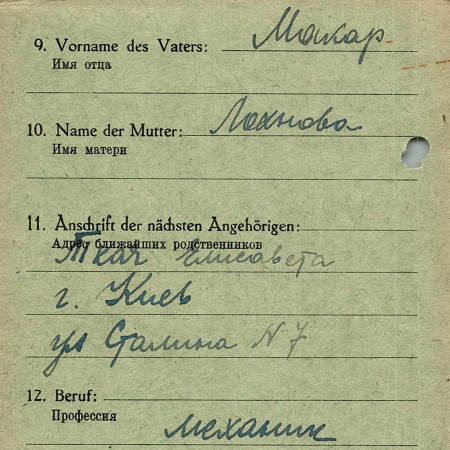 9. Vorname des Vaters: Макар
Имя отца
10. Name der Mutter: Лохнова
Имя матери
11. Anschrift der nächsten Angehörigen:
Адрес ближайших родственников
Ткач Елисавета
г. Киев
ул Сталина N 7
12. Beruf:
Профессия
механик